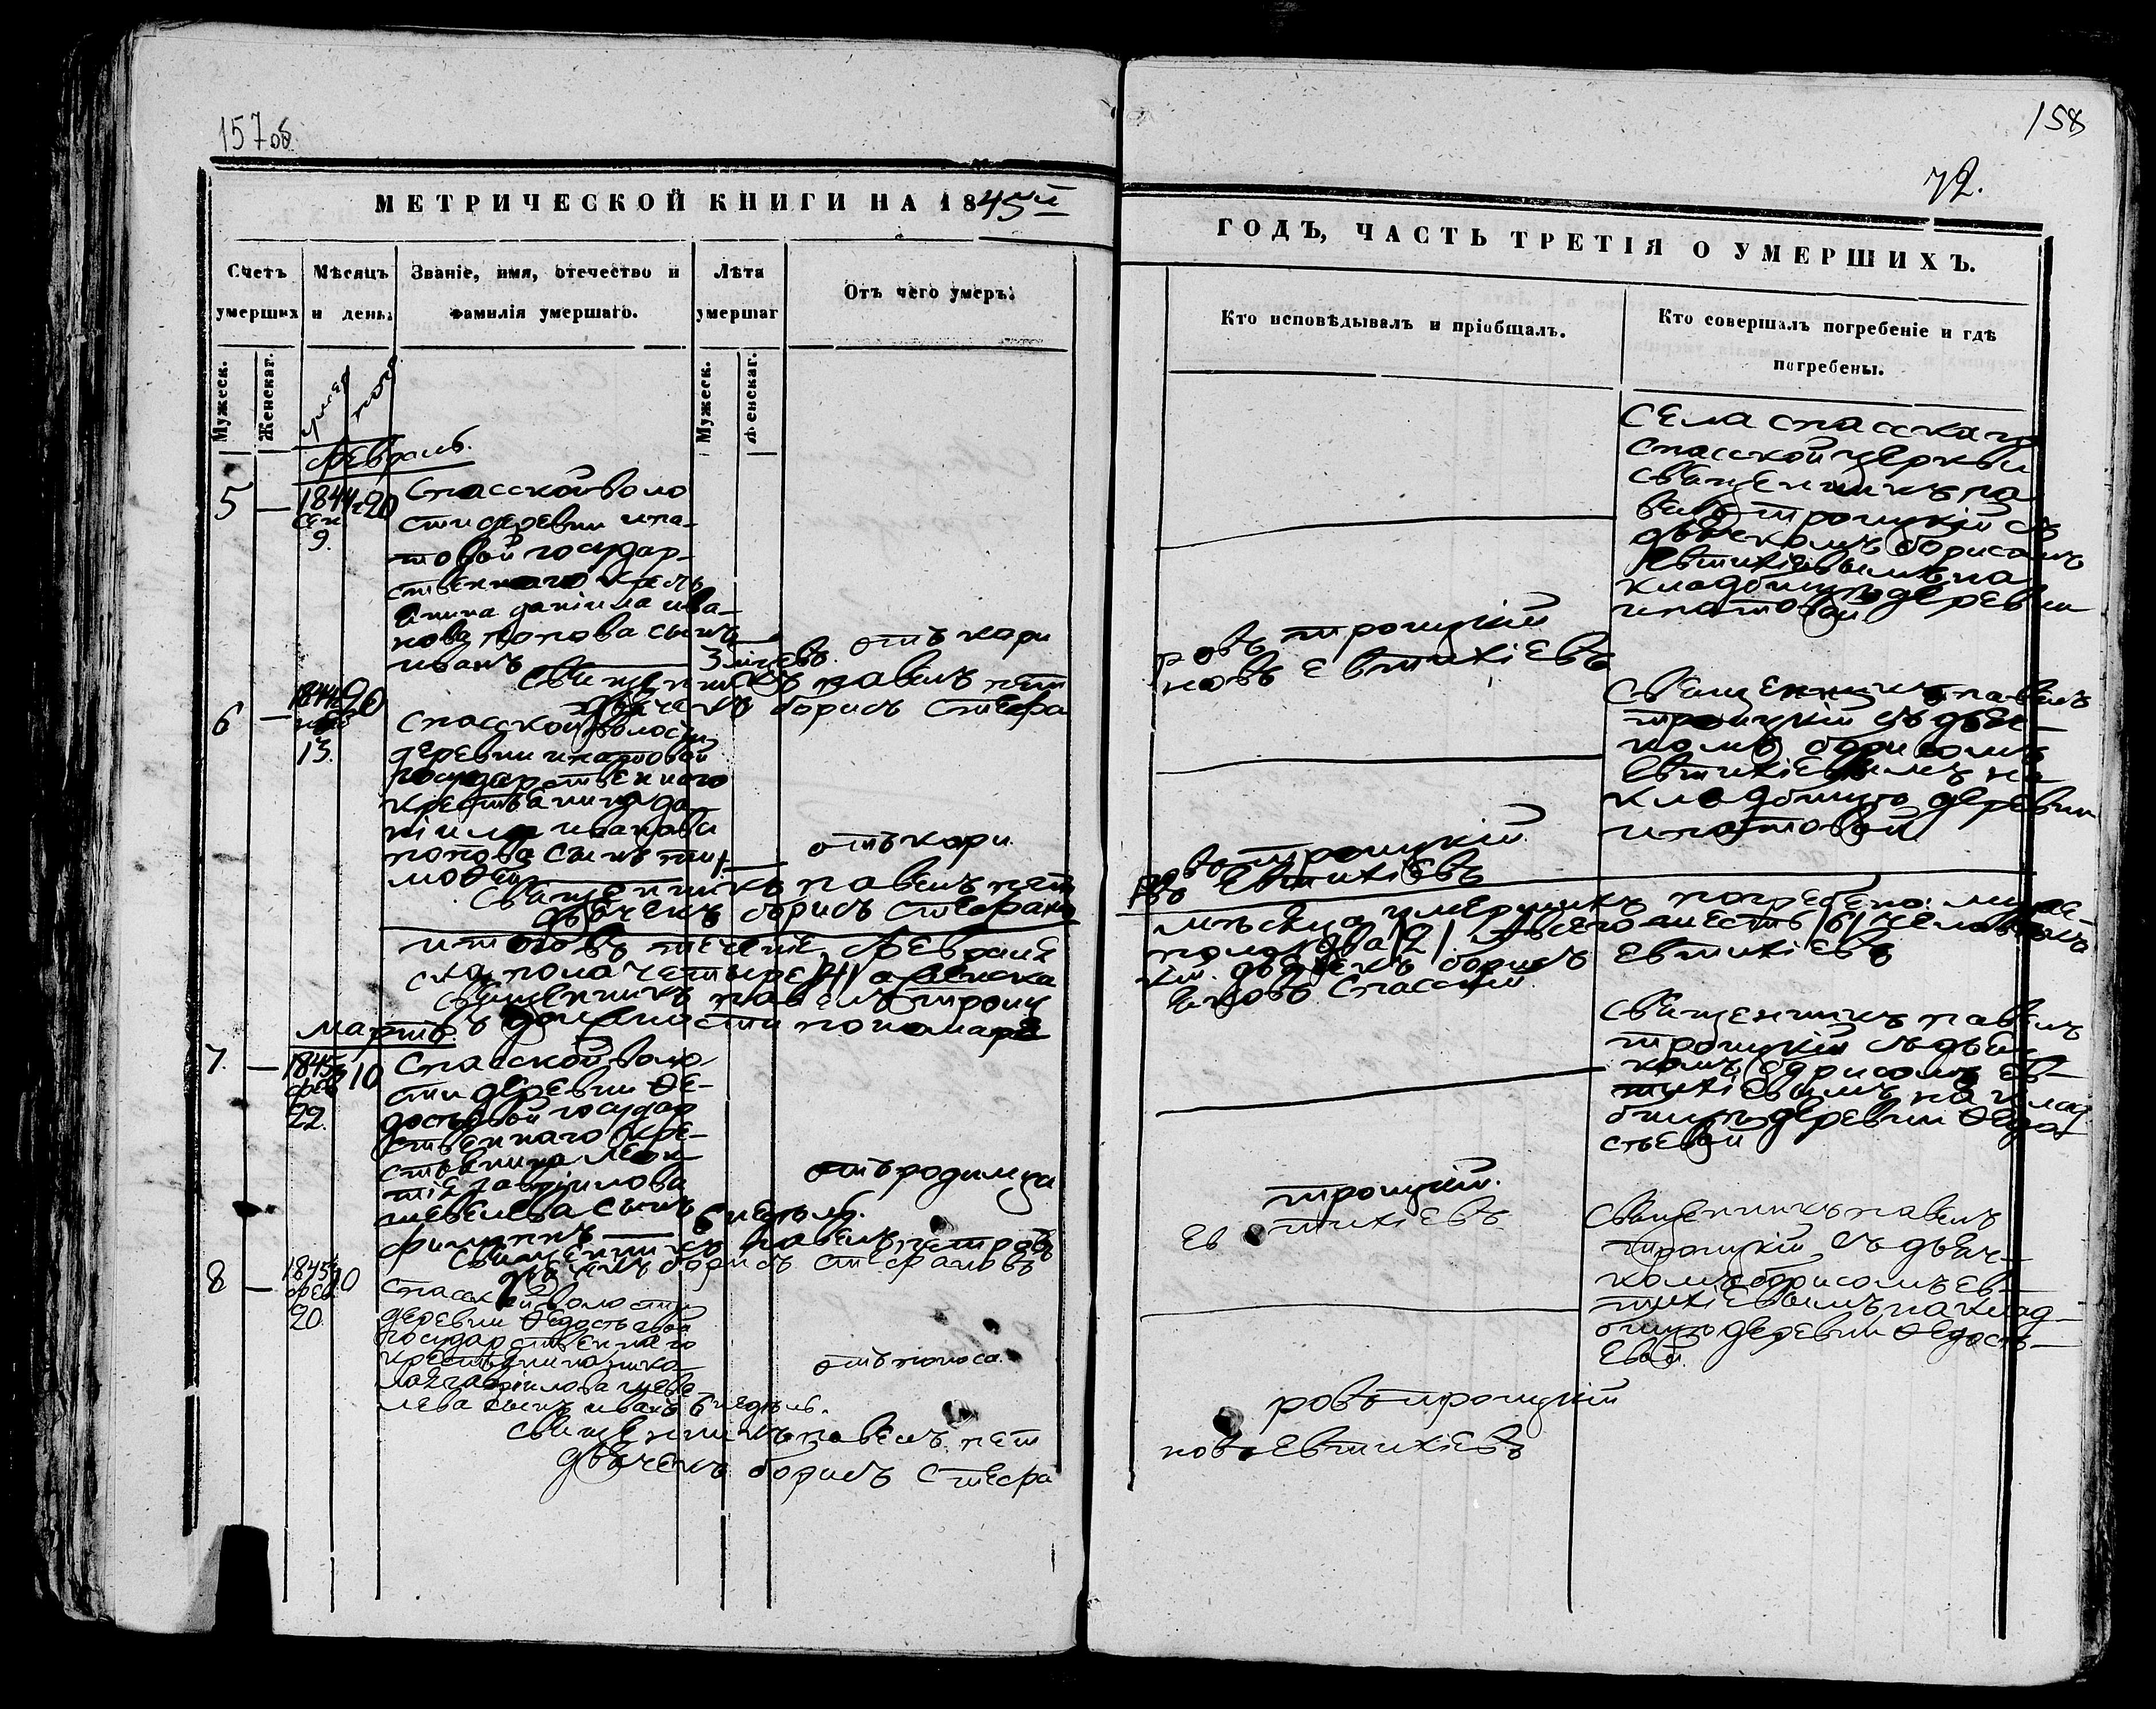 157 об
МЕТРИЧЕСКОЙ КНИГИ НА 1845й
Счетъ умерших
Мѣсяцъ и день.
Званіе, имя, отечество и фамилія умершаго.
Лѣта умершаг
Отъ чего умеръ.
Мужеск.
Женскаг.
Мужеск.
Женскаг.
Февраль.
5 — 1844 20
сен
9.
Спасской воло
сти деревни ипа-
товой государ-
ственнаго кресть
янина даніила ива-
нова попова сынъ
иванъ
3 отъ кори
Священникъ павелъ пет
дьячекъ борисъ стефа
6 — 1844 20
13.
Спасской волости
деревни ипатовой
государственнаго
крестьянина да-
ніила иванова
попова сынъ ти-
моѳей
отъ кори.
Священникъ павелъ пет
дьячекъ борисъ стефано
итого въ теченіе февраля
ска пола четыре /4/ а женска
священникъ павелъ троиц
въ должности пономаря
мартъ.
7. — 1845 10
фев
22.
Спасской воло-
сти деревни Ѳе-
достьевой государ
ственнаго кре-
стьянина леон-
тія гавріилова
шевелева сынъ
филиппъ — 6 недѣль.
отъ родимца
Священникъ павелъ петровъ
дьячекъ борисъ стефановъ
8 — 1845 10
фев.
20.
Спасской волости
деревни Ѳедостьевой
государственнаго
крестьянина нико-
лая гавріилова шеве
лева сынъ иванъ 6 недѣль.
отъ поноса.
Священникъ павелъ пет
дьячекъ борисъ стефа
158
72.
ГОДЪ, ЧАСТЬ ТРЕТІЯ О УМЕРШИХЪ.
Кто исповѣдывалъ и пріобщалъ.
Кто совершалъ погребеніе и гдѣ погребены.
Села спасскаго
спасской церкви
священникъ па
велъ троицкій съ
дьячкомъ борисомъ
Евтихіевымъ на
кладбищѣ деревни
ипатовой
ровъ троицкій
новъ Евтихіевъ
Священникъ павелъ
троицкій съ дьяч-
комъ борисомъ
Евтихіевымъ на
кладбищѣ деревни
ипатовой
ровъ троицкій
въ Евтихіевъ
мѣсяца умершихъ погребено: муже-
пола два /2/. А всего шесть /6/ человѣкъ
кій. дьячекъ борисъ Евтихіевъ
яковъ Спасскій.
Священникъ павелъ
троицкій съ дьяч
комъ борисомъ ев-
тихіевымъ на клад
бищѣ деревни Ѳедо
стьевой
троицкій.
Евтихіевъ
Священникъ павелъ
троицкій съ дьяч-
комъ борисомъ ев-
тихіевымъ на клад-
бищѣ деревни Ѳедость-
евой.
ровъ троицкій
новъ Евтихіевъ